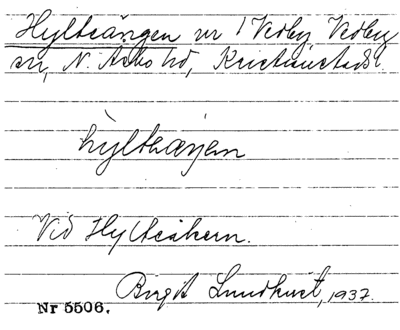 Hyltsängen nr 1 Vedby Vedby
sn, N. Åsbo hd, Kristianstads l.
hyltsæŋen
Vid Hyltsåkern.
Birgit Lundkvist, 1937.
Nr 5506.